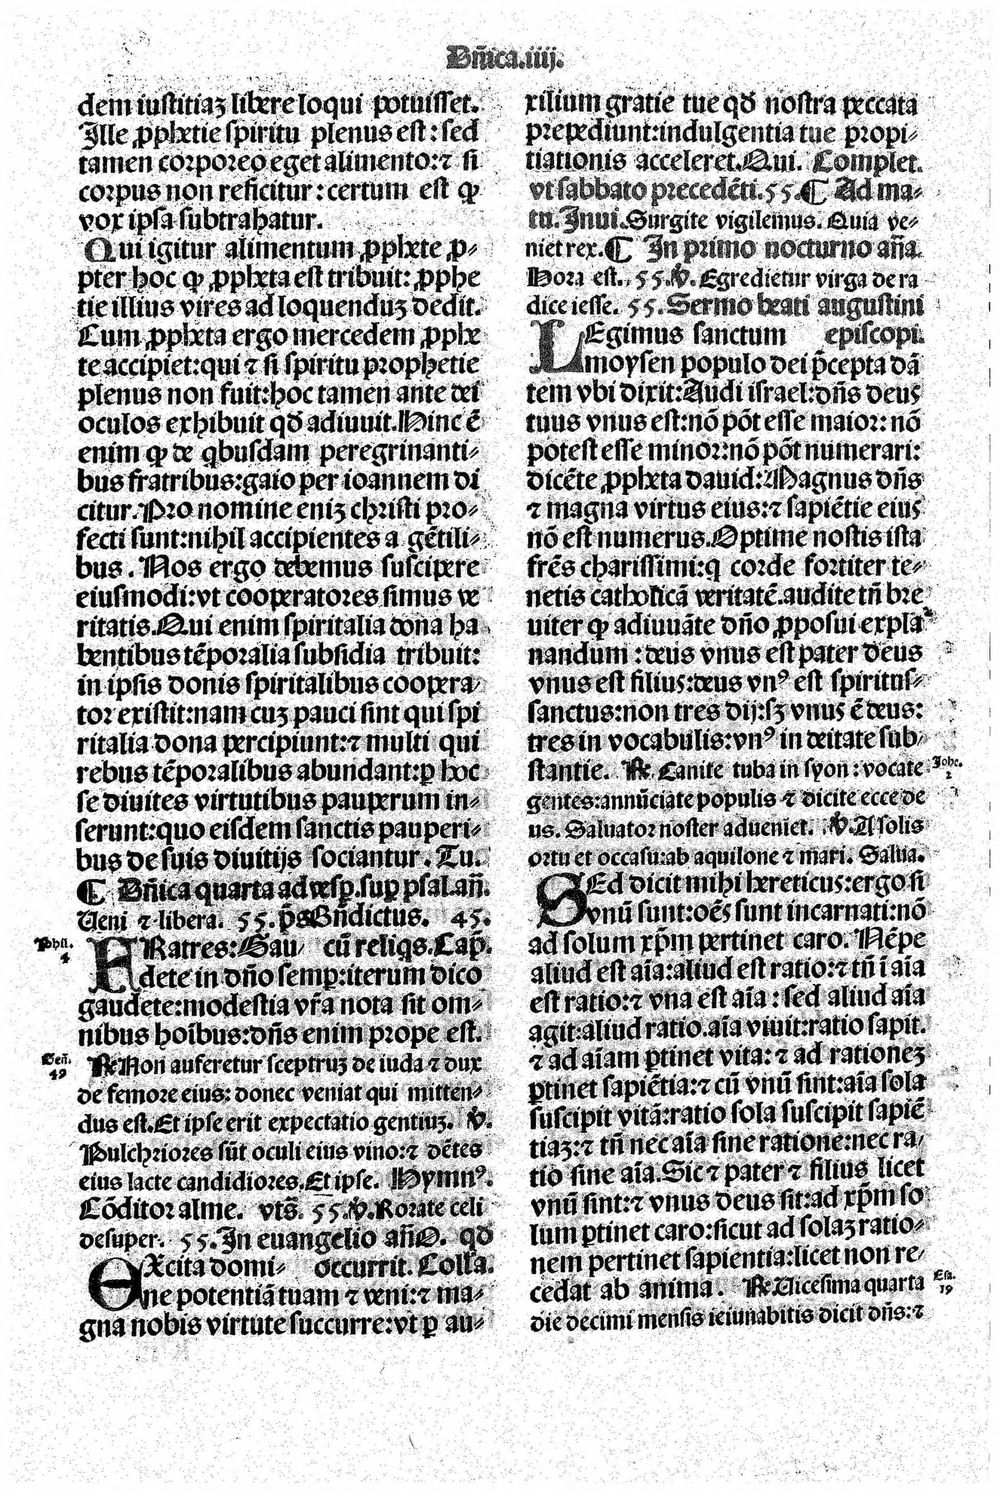 Dñica.iiij.
dem iustitiaʒ libere loqui potuisset.
Ille ꝓphetie spiritu plenus est: sed
tamen corporeo eget alimento:⁊ si
corpus non reficitur: certum est ꝙ
vox ipsa subtrahatur.
Qui igitur alimentum ꝓphete ꝓ⸗
pter hoc ꝙ ꝓpheta est tribuit: ꝓphe
tie illius vires ad loquenduʒ dedit.
Cum ꝓpheta ergo mercedem ꝓphe
te accipiet:qui ⁊ si spiritu prophetie
plenus non fuit:hoc tamen ante dei
oculos exhibuit qð adiuuit.Hinc ē
enim ꝙ de qbusdam peregrinanti⸗
bus fratribus:gaio per ioannem di
citur.Pro nomine eniʒ christi pro⸗
fecti sunt:nihil accipientes a gētili⸗
bus. Nos ergo debemus suscipere
eiusmodi:vt cooperatores simus ve
ritatis.Qui enim spiritalia dona ha
bentibus tēporalia subsidia tribuit:
in ipsis donis spiritalibus coopera⸗
tor existit:nam cuʒ pauci sint qui spi
ritalia dona percipiunt:⁊ multi qui
rebus tēporalibus abundant:ꝑ hoc
se diuites virtutibus pauperum in⸗
serunt:quo eisdem sanctis pauperi⸗
bus de suis diuitijs sociantur. Tu.
¶ Dñica quarta ad vesꝑ.suꝑ psal.añ.
Ueni ⁊ libera. 55. p̄s Bñdictus. 45.
Phil. 4
FRatres:Gau⸗ cū reliqs.Cap̄.
dete in dño semꝑ:iterum dico
gaudete:modestia vr̄a nota sit om⸗
nibus hoībus:dñs enim prope est.
Geñ. 49
℟.Non auferetur sceptruʒ de iuda ⁊ dux
de femore eius: donec veniat qui mitten⸗
dus est.Et ipse erit expectatio gentiuʒ. ℣.
Pulchriores sūt oculi eius vino:⁊ dētes
eius lacte candidiores.Et ipse. Hymn⁹.
Cōditor alme. vts̄. 55.℣.Rorate celi
desuper. 55.In euangelio añ.O. qð
EXcita domi⸗ occurrit. Colla.
ne potentiā tuam ⁊ veni:⁊ ma⸗
gna nobis virtute succurre:vt ꝑ au⸗
xilium gratie tue qð nostra peccata
prepediunt:indulgentia tue propi⸗
tiationis acceleret.Qui. Complet.
vt sabbato precedēti.55.¶ Ad ma⸗
tu.Inui.Surgite vigilemus. Quia ve⸗
niet rex.¶ In primo nocturno añ.
Hora est. 55.℣.Egredietur virga de ra
dice iesse. 55.Sermo beati augustini
LEgimus sanctum episcopi.
moysen populo dei p̄cepta dā
tem vbi dixit:Audi israel:dñs deus
tuus vnus est:nō pōt esse maior: nō
potest esse minor:nō pōt numerari:
dicēte ꝓpheta dauid:Magnus dñs
⁊ magna virtus eius:⁊ sapiētie eius
nō est numerus.Optime nostis ista
frēs charissimi:q corde fortiter te⸗
netis catholicā veritatē.audite tñ bre
uiter ꝙ adiuuāte dño ꝓposui expla
nandum: deus vnus est pater deus
vnus est filius:deus vn⁹ est spiritus⸗
sanctus:non tres dij:sʒ vnus ē deus:
tres in vocabulis:vn⁹ in deitate sub⸗
stantie. ℟.Canite tuba in syon: vocate
Johe. 2
gentes:annūciate populis ⁊ dicite ecce de
us. Saluator noster adueniet. ℣.A solis
ortu et occasu:ab aquilone ⁊ mari. Salua.
SEd dicit mihi hereticus:ergo si
vnū sunt:oēs sunt incarnati:nō
ad solum xp̄m pertinet caro. Nēpe
aliud est aīa:aliud est ratio:⁊ tñ ī aīa
est ratio:⁊ vna est aīa: sed aliud aīa
agit:aliud ratio.aīa viuit:ratio sapit.
⁊ ad aīam ꝑtinet vita: ⁊ ad rationeʒ
ꝑtinet sapiētia:⁊ cū vnū sint:aīa sola
suscipit vitā:ratio sola suscipit sapiē
tiaʒ:⁊ tñ nec aīa sine ratione:nec ra⸗
tio sine aīa.Sic ⁊ pater ⁊ filius licet
vnū sint:⁊ vnus deus sit:ad xp̄m so
lum ꝑtinet caro:sicut ad solaʒ ratio⸗
nem pertinet sapientia:licet non re⸗
cedat ab anima. ℟.Uicesima quarta
Esa. 19
die decimi mensis ieiunabitis dicit dñs:⁊